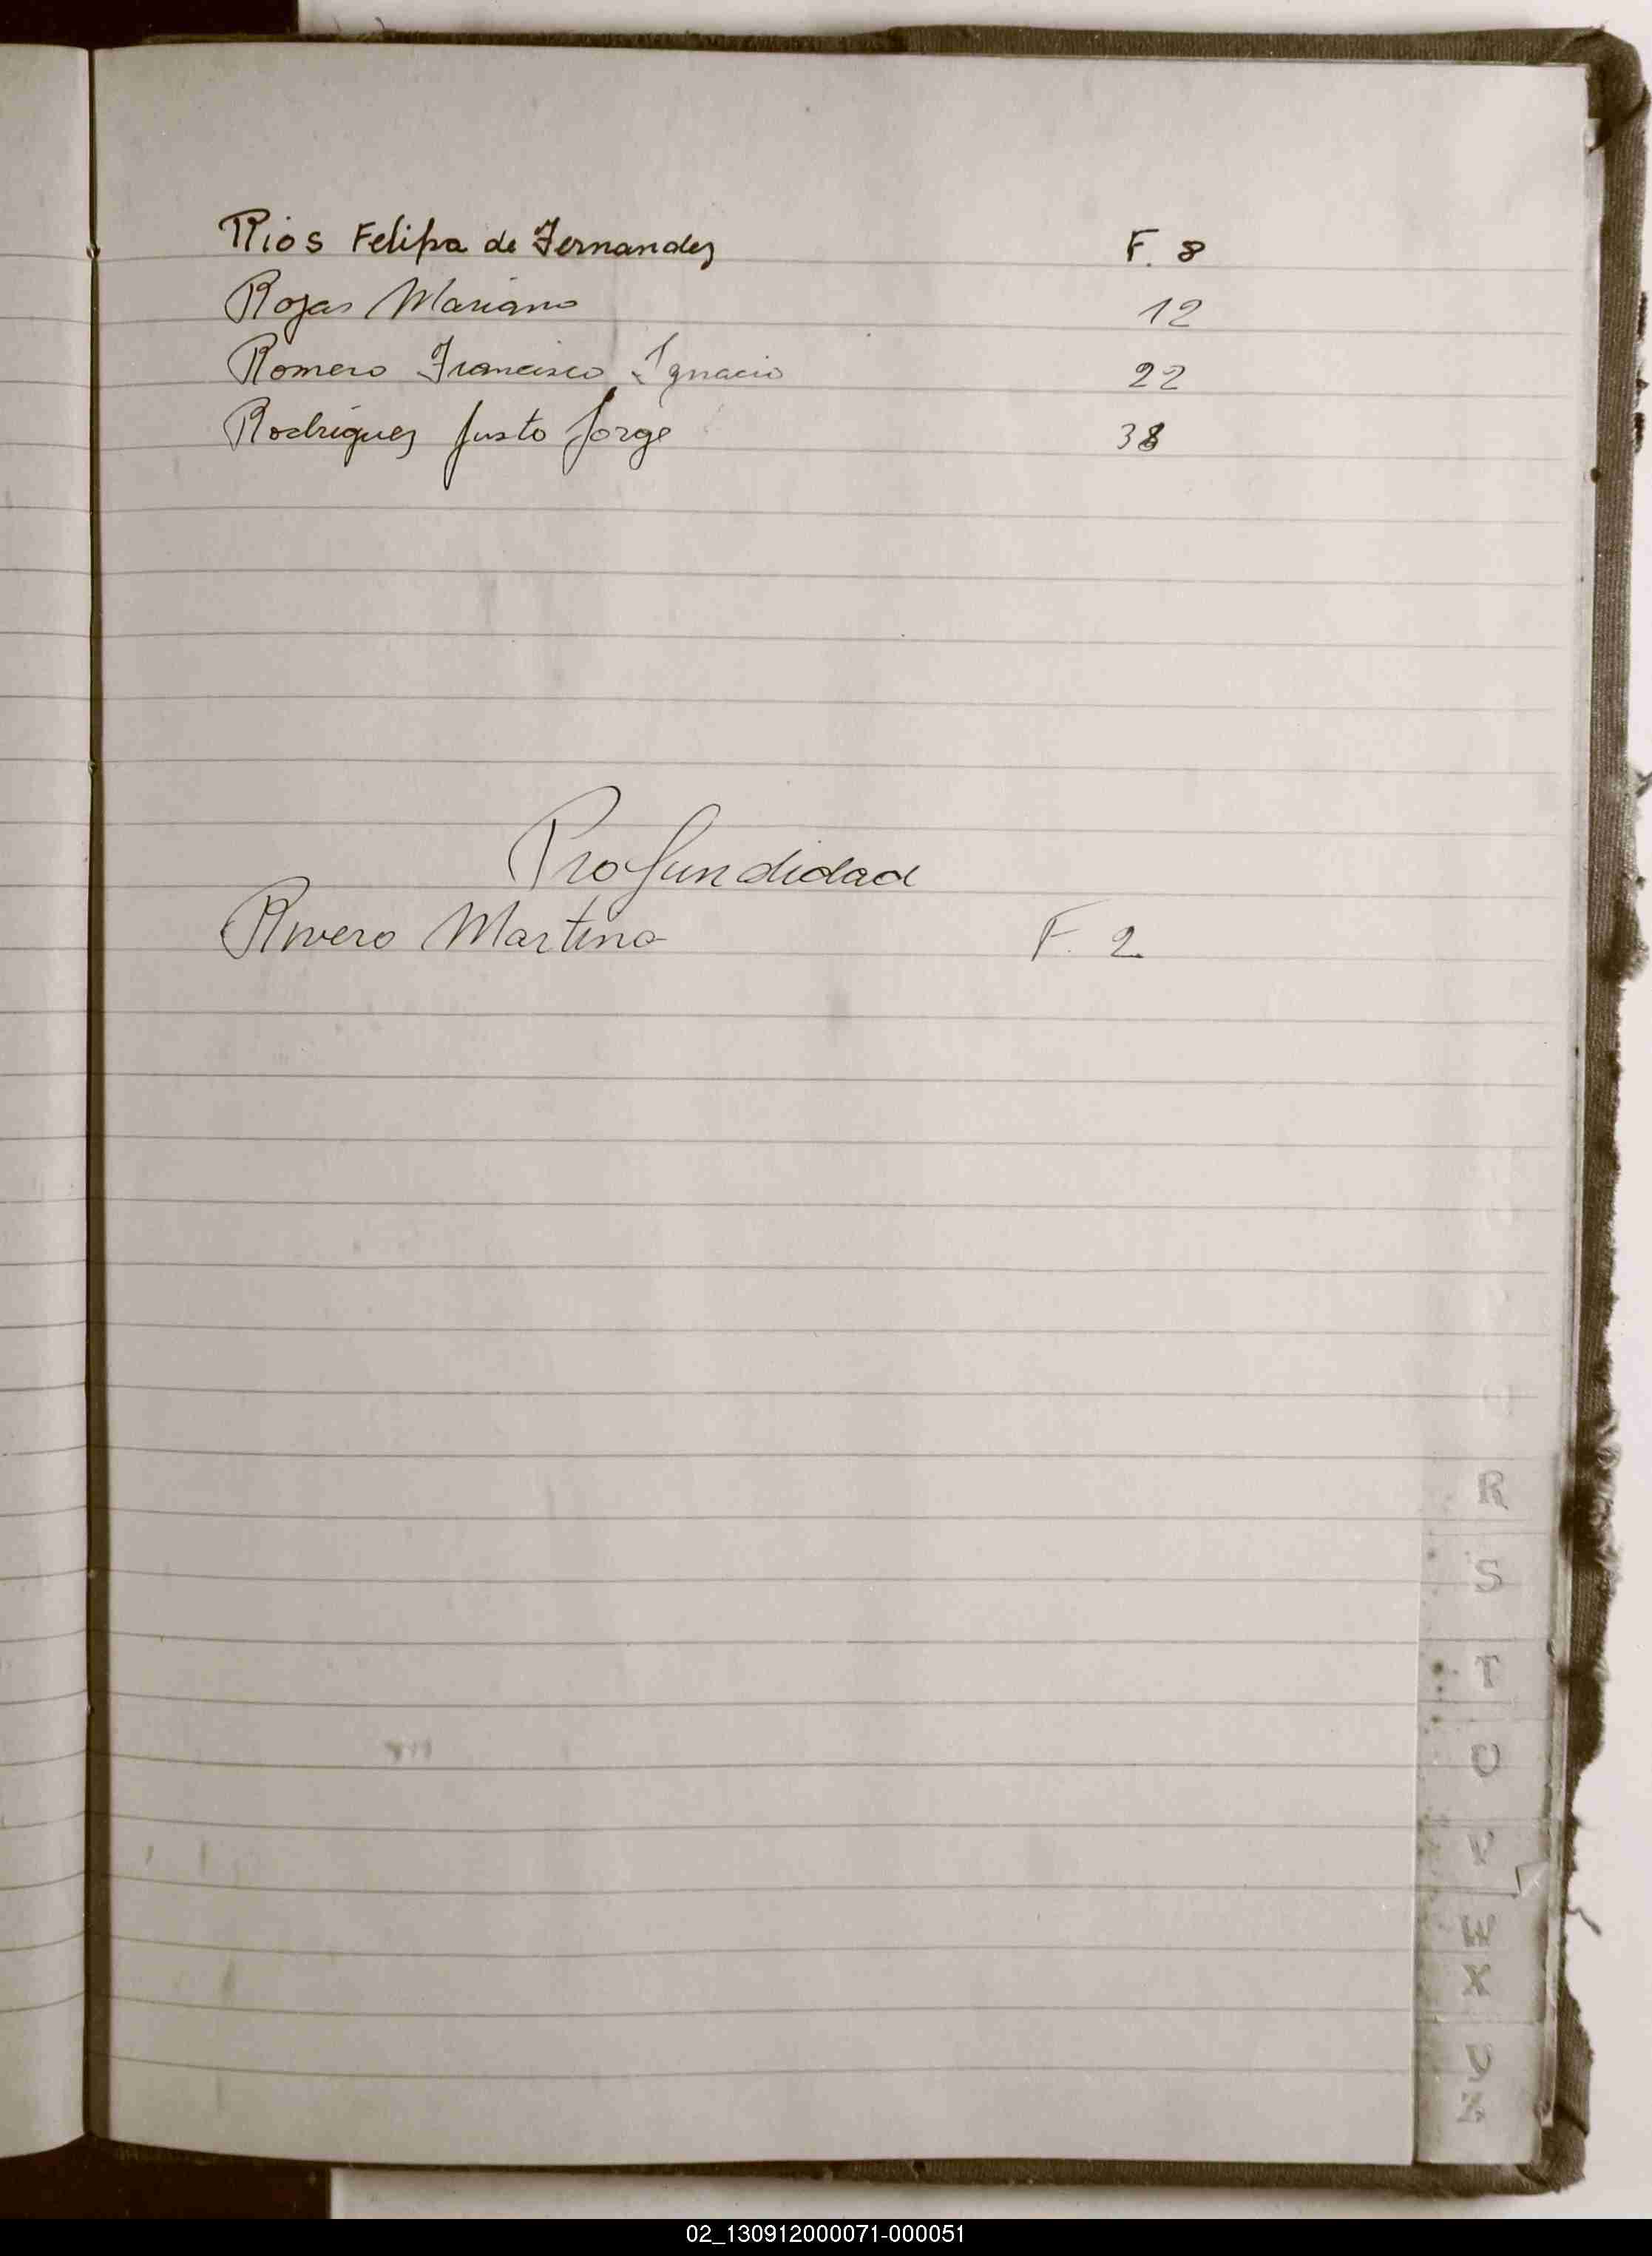 Rios Felipa de Fernandez F. 8
Rojas Mariano 12
Romero Francisco Ignacio 22
Rodriguez Justo Jorge 38
Profundidad
Rivero Martina F. 2
R
S
T
U
V
X
02_130912000071-000051